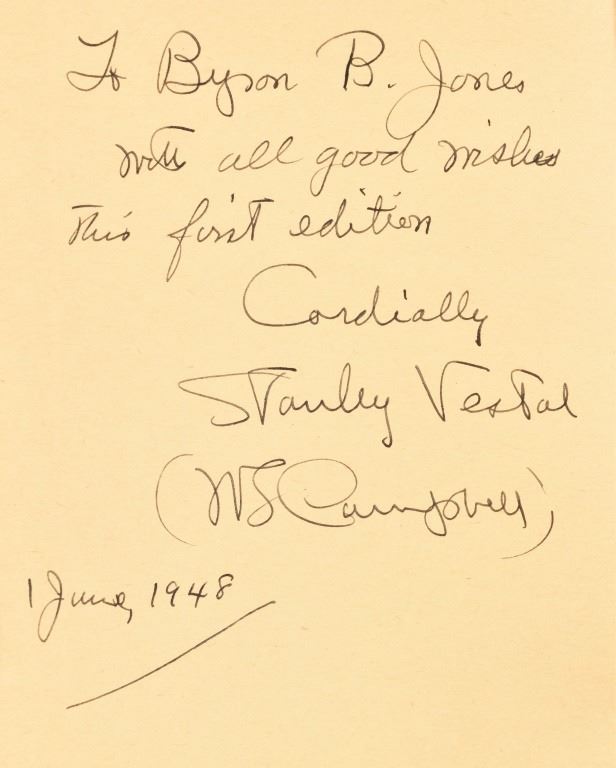 To Byron B. Jones
with all good wishes
this first edition
Cordially
Stanley Vestal
(WS Campbell)
1 June, 1948